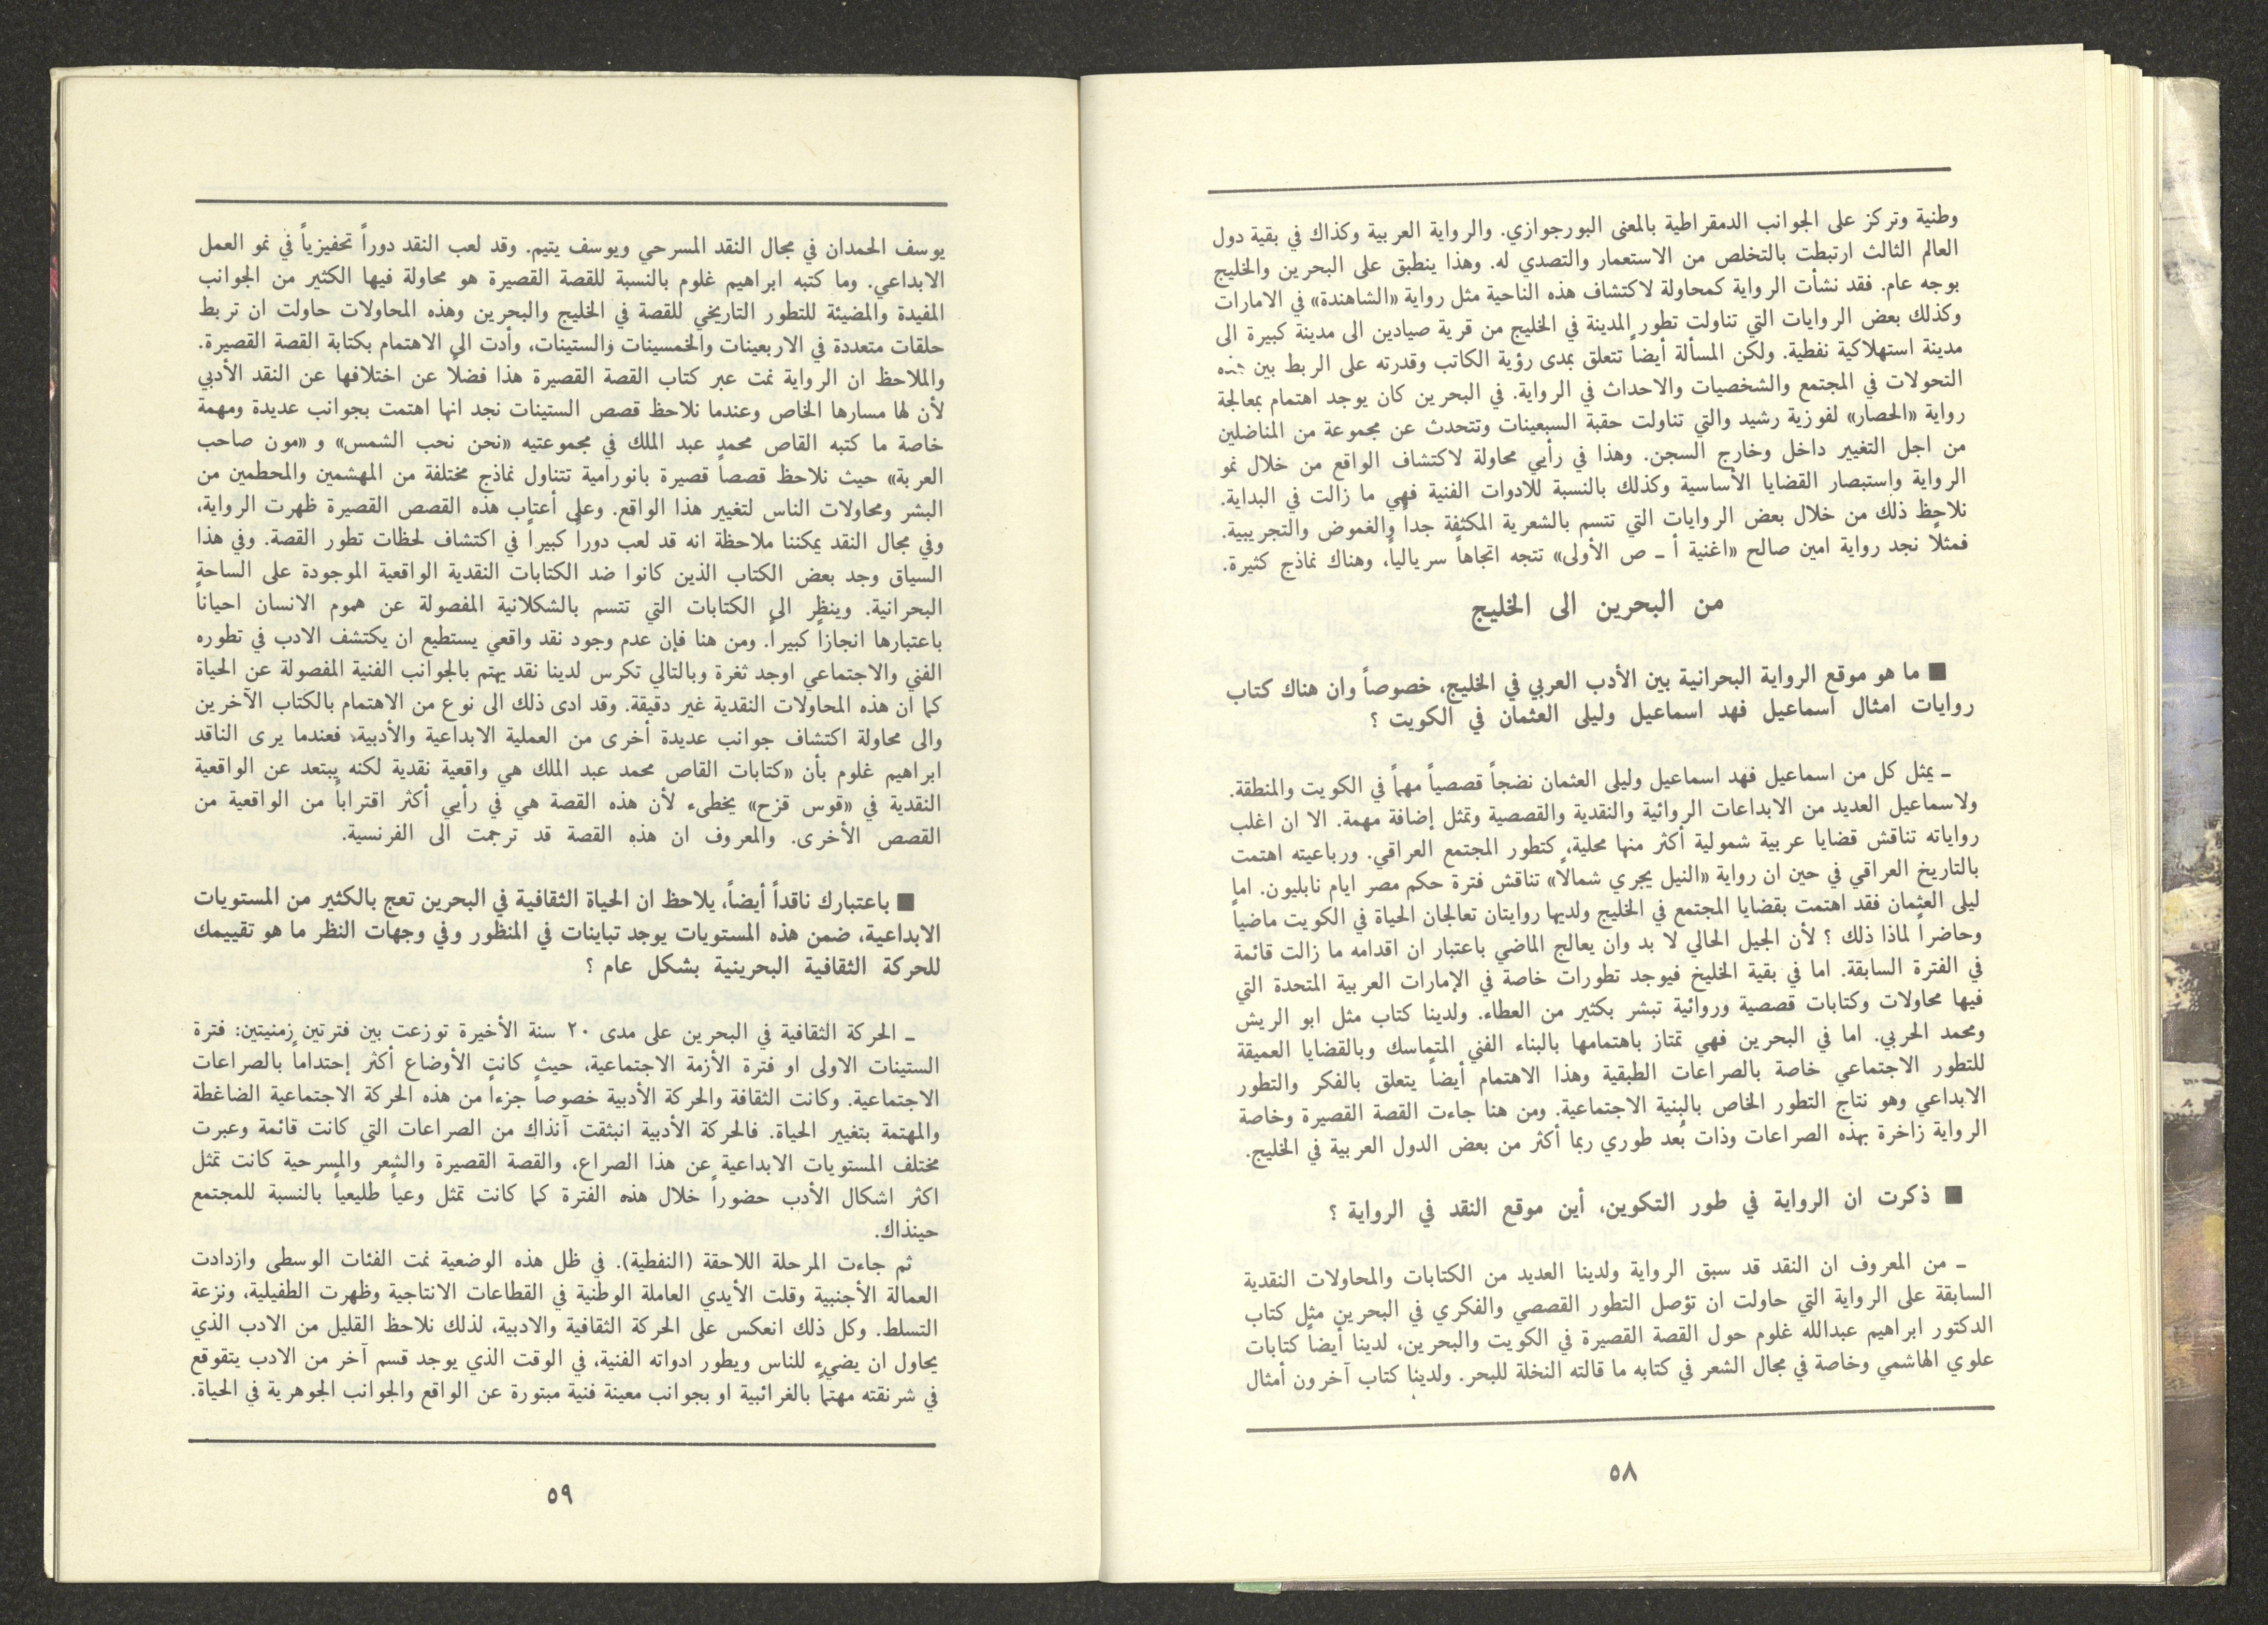 وطنية وتركز على الجوانب الدمقراطية بالمعنى البورجوازي. والرواية العربية وكذاك في بقية دول
العالم الثالث ارتبطت بالتخلص من الاستعمار والتصدي له. وهذا ينطبق على البحرين والخليج
بوجه عام. فقد نشأت الرواية كمحاولة لاكتشاف هذه الناحية مثل رواية «الشاهندة» في الامارات
وكذلك بعض الروايات التي تناولت تطور المدينة في الخليج من قرية صيادين الى مدينة كبيرة الى
مدينة استهلاكية نفطية. ولكن المسألة أيضاً تتعلق بمدى رؤية الكاتب وقدرته على الربط بين هذه
التحولات في المجتمع والشخصيات والاحداث في الرواية. في البحرين كان يوجد اهتمام بمعالجة
رواية «الحصار» لفوزية رشيد والتي تناولت حقبة السبعينات وتتحدث عن مجموعة من المناضلين
من اجل التغيير داخل وخارج السجن. وهذا في رأيي محاولة لاكتشاف الواقع من خلال نمو
الرواية واستبصار القضايا الأساسية وكذلك بالنسبة للادوات الفنية فهي ما زالت في البداية.
نلاحظ ذلك من خلال بعض الروايات التي تتسم بالشعرية المكثفة جداً والغموض والتجريبية.
فمثلاً نجد رواية امين صالح «اغنية أ ـ ص الأولى» تتجه اتجاهاً سريالياً، وهناك نماذج كثيرة.
من البحرين الى الخليج
■ ما هو موقع الرواية البحرانية بين الأدب العربي في الخليج، خصوصاً وان هناك كتاب
روايات امثال اسماعيل فهد اسماعيل وليلى العثمان في الكويت ؟
ـ يمثل كل من اسماعيل فهد اسماعيل وليلى العثمان نضجاً قصصياً مهماً في الكويت والمنطقة.
ولاسماعيل العديد من الابداعات الروائية والنقدية والقصصية وتمثل إضافة مهمة. الا ان اغلب
رواياته تناقش قضايا عربية شمولية أكثر منها محلية، كتطور المجتمع العراقي. ورباعيته اهتمت
بالتاريخ العراقي في حين ان رواية «النيل يجري شمالاً» تناقش فترة حكم مصر ايام نابليون. اما
ليلى العثمان فقد اهتمت بقضايا المجتمع في الخليج ولديها روايتان تعالجان الحياة في الكويت ماضياً
وحاضراً لماذا ذلك ؟ لأن الجيل الحالي لا بد وان يعالج الماضي باعتبار ان اقدامه ما زالت قائمة
في الفترة السابقة. اما في بقية الخليخ فيوجد تطورات خاصة في الإمارات العربية المتحدة التي
فيها محاولات وكتابات قصصية وروائية تبشر بكثير من العطاء. ولدينا كتاب مثل ابو الريش
ومحمد الحربي. اما في البحرين فهي تمتاز باهتمامها بالبناء الفني المتماسك وبالقضايا العميقة
للتطور الاجتماعي خاصة بالصراعات الطبقية وهذا الاهتمام أيضاً يتعلق بالفكر والتطور
الابداعي وهو نتاج التطور الخاص بالبنية الاجتماعية. ومن هنا جاءت القصة القصيرة وخاصة
الرواية زاخرة بهذه الصراعات وذات بُعد طوري ربما أكثر من بعض الدول العربية في الخليج.
■ ذكرت ان الرواية في طور التكوين، أين موقع النقد في الرواية ؟
ـ من المعروف ان النقد قد سبق الرواية ولدينا العديد من الكتابات والمحاولات النقدية
السابقة على الرواية التي حاولت ان تؤصل التطور القصصي والفكري في البحرين مثل كتاب
الدكتور ابراهيم عبدالله غلوم حول القصة القصيرة في الكويت والبحرين، لدينا أيضاً كتابات
علوي الهاشمي وخاصة في مجال الشعر في كتابه ما قالته النخلة للبحر. ولدينا كتاب آخرون أمثال
٥٨
يوسف الحمدان في مجال النقد المسرحي ويوسف يتيم. وقد لعب النقد دوراً تحفيزياً في نمو العمل
الابداعي. وما كتبه ابراهيم غلوم بالنسبة للقصة القصيرة هو محاولة فيها الكثير من الجوانب
المفيدة والمضيئة للتطور التاريخي للقصة في الخليج والبحرين وهذه المحاولات حاولت ان تربط
حلقات متعددة في الاربعينات والخمسينات والستينات، وأدت الى الاهتمام بكتابة القصة القصيرة.
والملاحظ ان الرواية نمت عبر كتاب القصة القصيرة هذا فضلاً عن اختلافها عن النقد الأدبي
لأن لها مسارها الخاص وعندما نلاحظ قصص الستينات نجد انها اهتمت بجوانب عديدة ومهمة
خاصة ما كتبه القاص محمد عبد الملك في مجموعتيه «نحن نحب الشمس» و «مون صاحب
العربة» حيث نلاحظ قصصاً قصيرة بانورامية تتناول نماذج مختلفة من المهشمين والمحطمين من
البشر ومحاولات الناس لتغيير هذا الواقع. وعلى أعتاب هذه القصص القصيرة ظهرت الرواية،
وفي مجال النقد يمكننا ملاحظة انه قد لعب دوراً كبيراً في اكتشاف لحظات تطور القصة. وفي هذا
السياق وجد بعض الكتاب الذين كانوا ضد الكتابات النقدية الواقعية الموجودة على الساحة
البحرانية. وينظر الى الكتابات التي تتسم بالشكلانية المفصولة عن هموم الانسان احياناً
باعتبارها انجازاً كبيراً. ومن هنا فإن عدم وجود نقد واقعي يستطيع ان يكتشف الادب في تطوره
الفني والاجتماعي اوجد ثغرة وبالتالي تكرس لدينا نقد يهتم بالجوانب الفنية المفصولة عن الحياة
كما ان هذه المحاولات النقدية غير دقيقة. وقد ادى ذلك الى نوع من الاهتمام بالكتاب الآخرين
والى محاولة اكتشاف جوانب عديدة أخرى من العملية الابداعية والأدبية، فعندما يرى الناقد
ابراهيم غلوم بأن «كتابات القاص محمد عبد الملك هي واقعية نقدية لكنه يبتعد عن الواقعية
النقدية في «قوس قزح» يخطىء لأن هذه القصة هي في رأيي أكثر اقتراباً من الواقعية من
القصص الأخرى. والمعروف ان هذه القصة قد ترجمت الى الفرنسية.
■ باعتبارك ناقداً أيضاً، يلاحظ ان الحياة الثقافية في البحرين تعج بالكثير من المستويات
الابداعية، ضمن هذه المستويات يوجد تباينات في المنظور وفي وجهات النظر ما هو تقييمك
للحركة الثقافية البحرينية بشكل عام ؟
ـ الحركة الثقافية في البحرين على مدى ٢٠ سنة الأخيرة توزعت بين فترتين زمنيتين: فترة
الستينات الاولى او فترة الأزمة الاجتماعية، حيث كانت الأوضاع أكثر إحتداماً بالصراعات
الاجتماعية. وكانت الثقافة والحركة الأدبية خصوصاً جزءاً من هذه الحركة الاجتماعية الضاغطة
والمهتمة بتغيير الحياة. فالحركة الأدبية انبثقت آنذاك من الصراعات التي كانت قائمة وعبرت
مختلف المستويات الابداعية عن هذا الصراع، والقصة القصيرة والشعر والمسرحية كانت تمثل
اكثر اشكال الأدب حضوراً خلال هذه الفترة كما كانت تمثل وعياً طليعياً بالنسبة للمجتمع
حينذاك.
ثم جاءت المرحلة اللاحقة (النفطية). في ظل هذه الوضعية نمت الفئات الوسطى وازدادت
العمالة الأجنبية وقلت الأيدي العاملة الوطنية في القطاعات الانتاجية وظهرت الطفيلية، ونزعة
التسلط. وكل ذلك انعكس على الحركة الثقافية والادبية، لذلك نلاحظ القليل من الادب الذي
يحاول ان يضيء للناس ويطور ادواته الفنية، في الوقت الذي يوجد قسم آخر من الادب يتقوقع
في شرنقته مهتماً بالغرائبية او بجوانب معينة فنية مبتورة عن الواقع والجوانب الجوهرية في الحياة.
٥٩